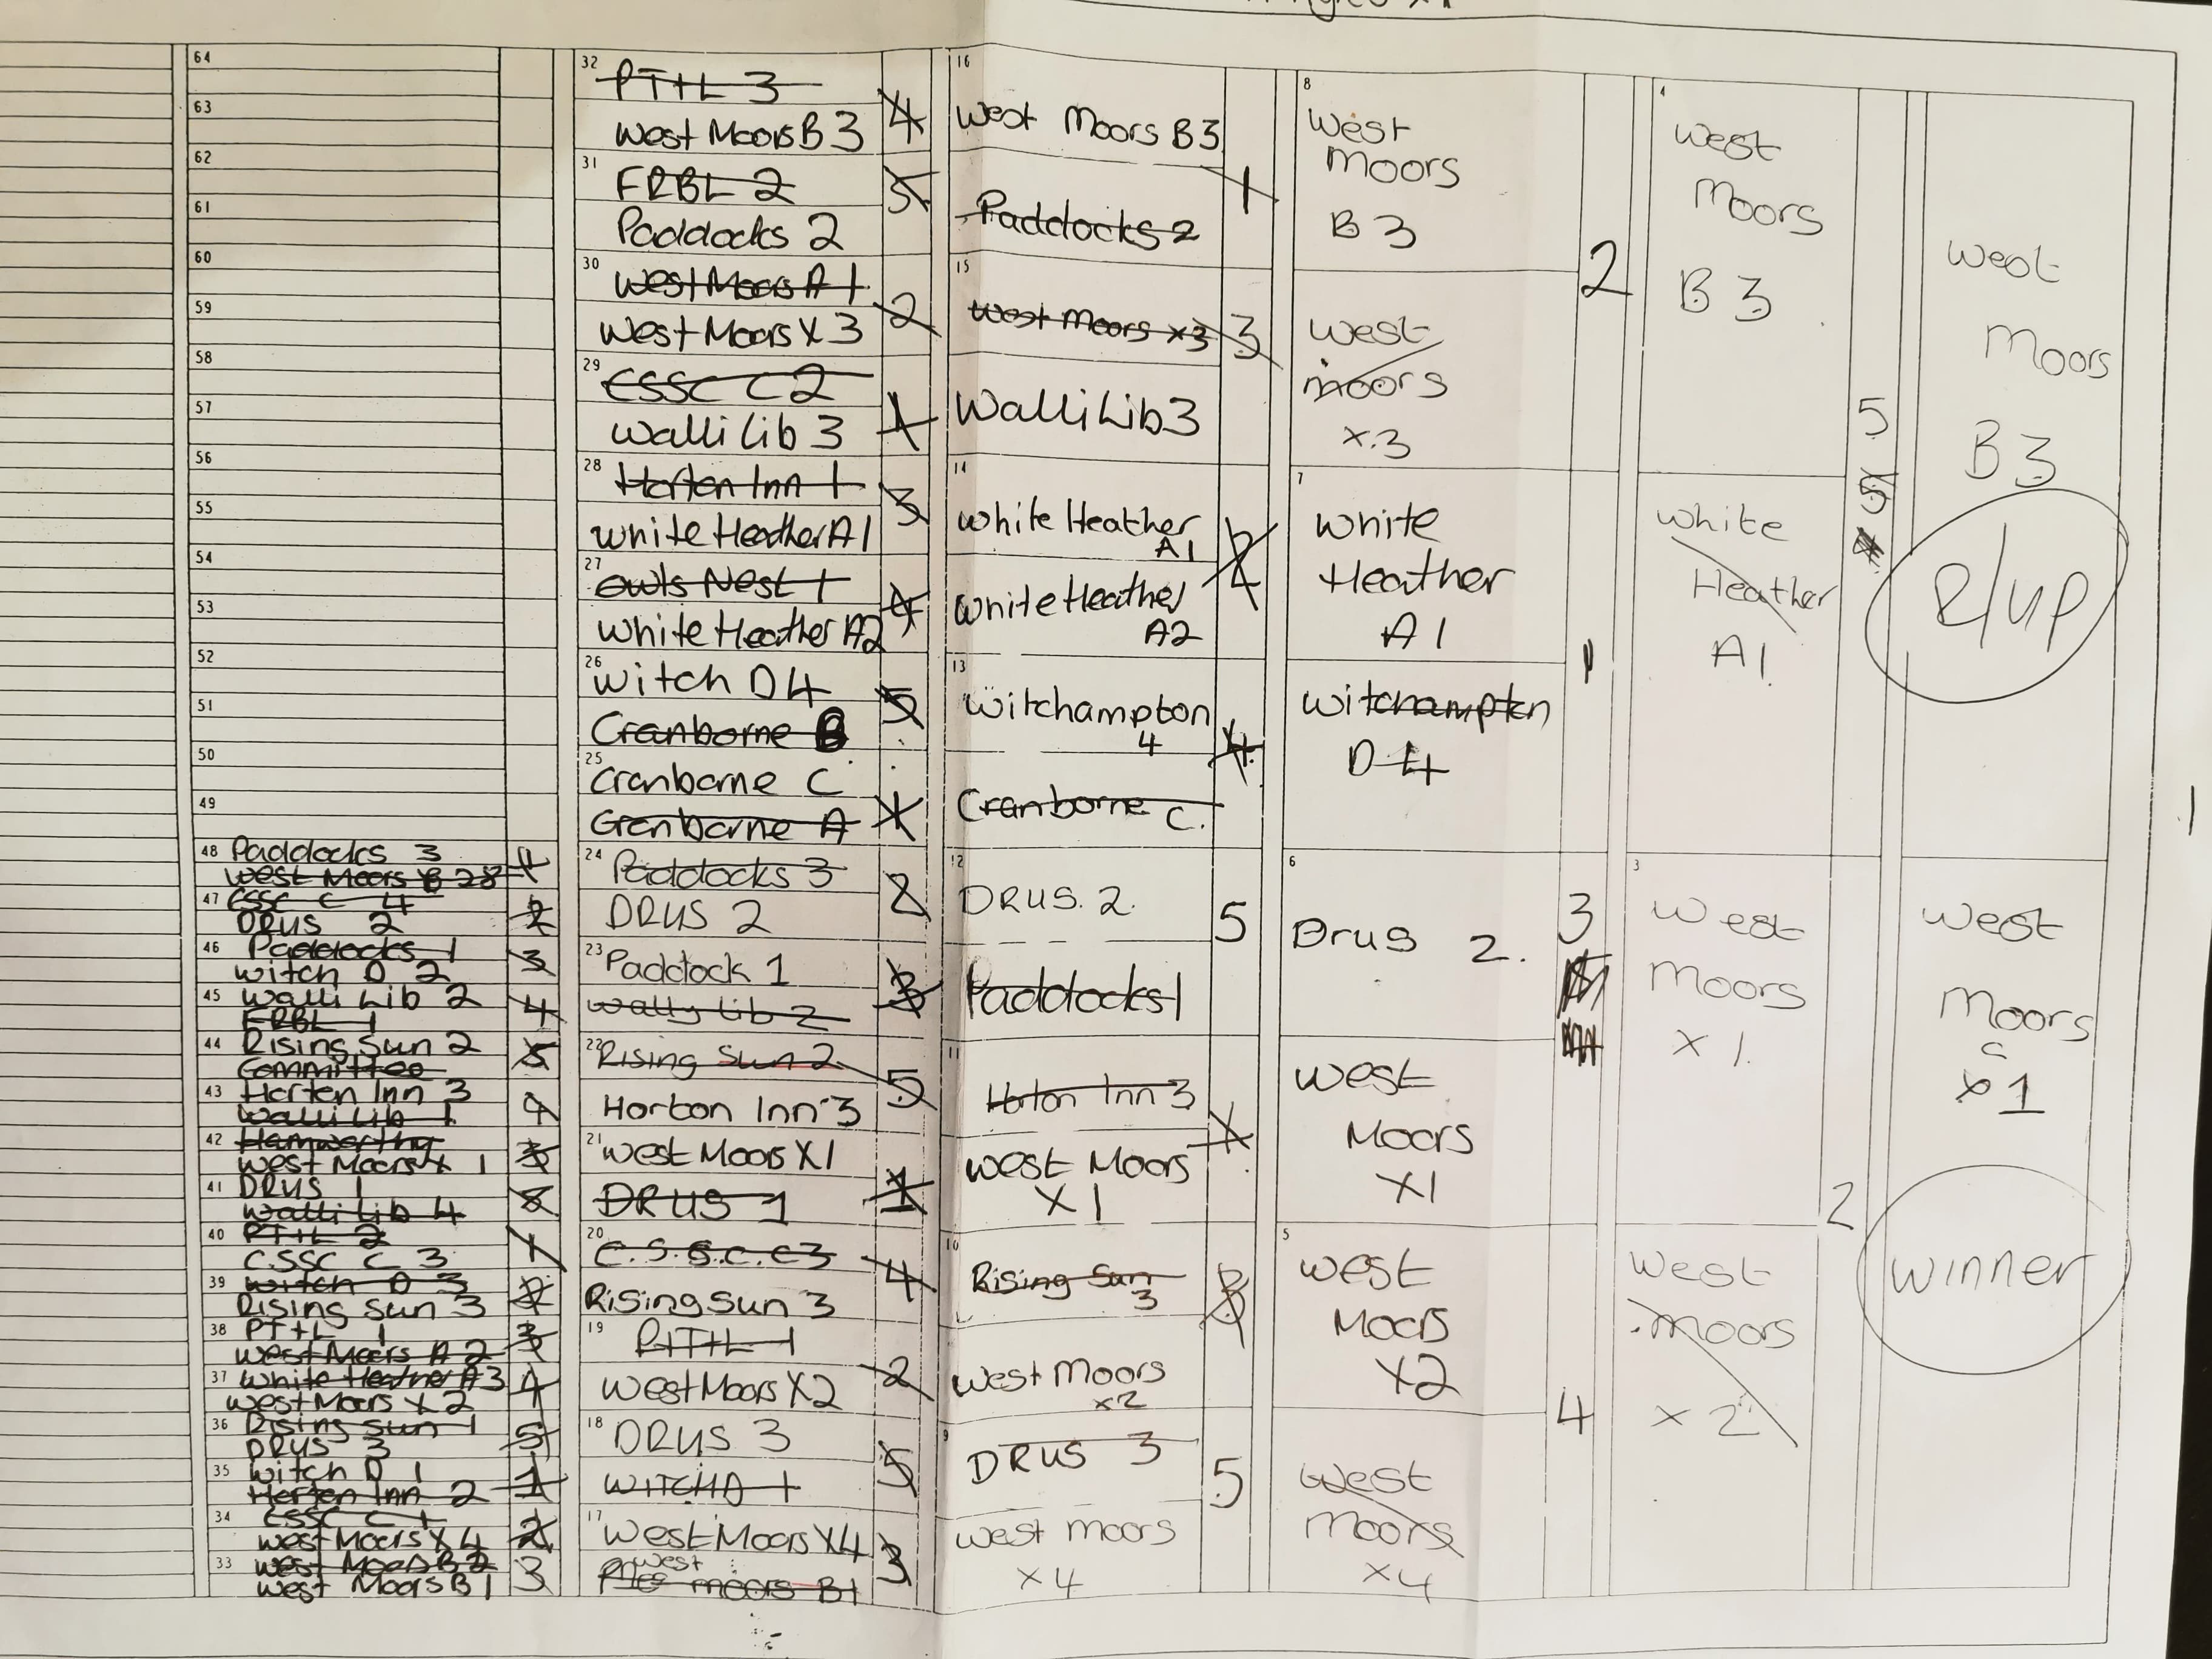 64
63
62
61
60
59
58
57
56
55
54
53
52
51
50
49
48 Paddocks 3
West Moors B
4
47 CSSC C 4
DRUS 2
2
46 Paddocks 1
Witch D 2
3
45 Walli Lib 2
FRBL 1
4
44 Rising Sun 2
Committee
5
43 Horton Inn 3
Walli Lib 1
4
42 Hamworthy
West Moors X 1
3
41 DRUS 1
Walli Lib 4
40 PT+L 2
CSSC C 3
1
39 Witch D 3
Rising Sun 3
2
38 PT+L 1
West Moors A 2
3
37 White Heather A3
West Moors X 2
4
36 Rising Sun 1
DRUS 3
5
35 Witch D 1
Horton Inn 2
1
34 CSSC C 1
West Moors X 4
2
33 West Moors B 2
West Moors B 1
3
32 PT+L 3
West Moors B 3
4
31 FRBL 2
Paddocks 2
5
30 West Moors A 1
West Moors X 3
2
29 CSSC C 2
Walli Lib 3
1
28 Horton Inn 1
White Heather A1
3
27 Owls Nest 1
White Heather A2
4
26 Witch D4
Cranborne B
5
25 Cranborne C
Cranborne A
1
24 Paddocks 3
DRUS 2
2
23 Paddock 1
Wally Lib 2
3
22 Rising Sun 2
Horton Inn 3
5
21 West Moors X1
DRUS 1
1
20 C.S.S.C. C3
Rising Sun 3
4
19 PTTL 1
West Moors X2
2
18 DRUS 3
WITCHD 1
5
17 West Moors X4
West
Moors B1
3
16
West Moors B3
Paddocks 2
1
15
West Moors X3
Walli Lib 3
3
14
White Heather
A1
White Heather
A2
2
13
Witchampton
4
Cranborne
C.
4
12
DRUS. 2.
Paddocks 1
5
11
Horton Inn 3
West Moors
X 1
1
10
Rising Sun
3
West Moors
X2
3
9
DRUS 3
West Moors
X4
5
8
West
Moors
B 3
West
Moors
X.3
2
7
White
Heather
A 1
Witchampton
D 4
1
6
Drus 2.
West
Moors
X1
3
5
West
Moors
X2
West
Moors
X4
4
4
West
Moors
B 3
White
Heather
A1
5
5
3
West
Moors
X 1
West
Moors
X 2
2
West
Moors
B 3
R/UP
West
Moors
X 1
Winner
1